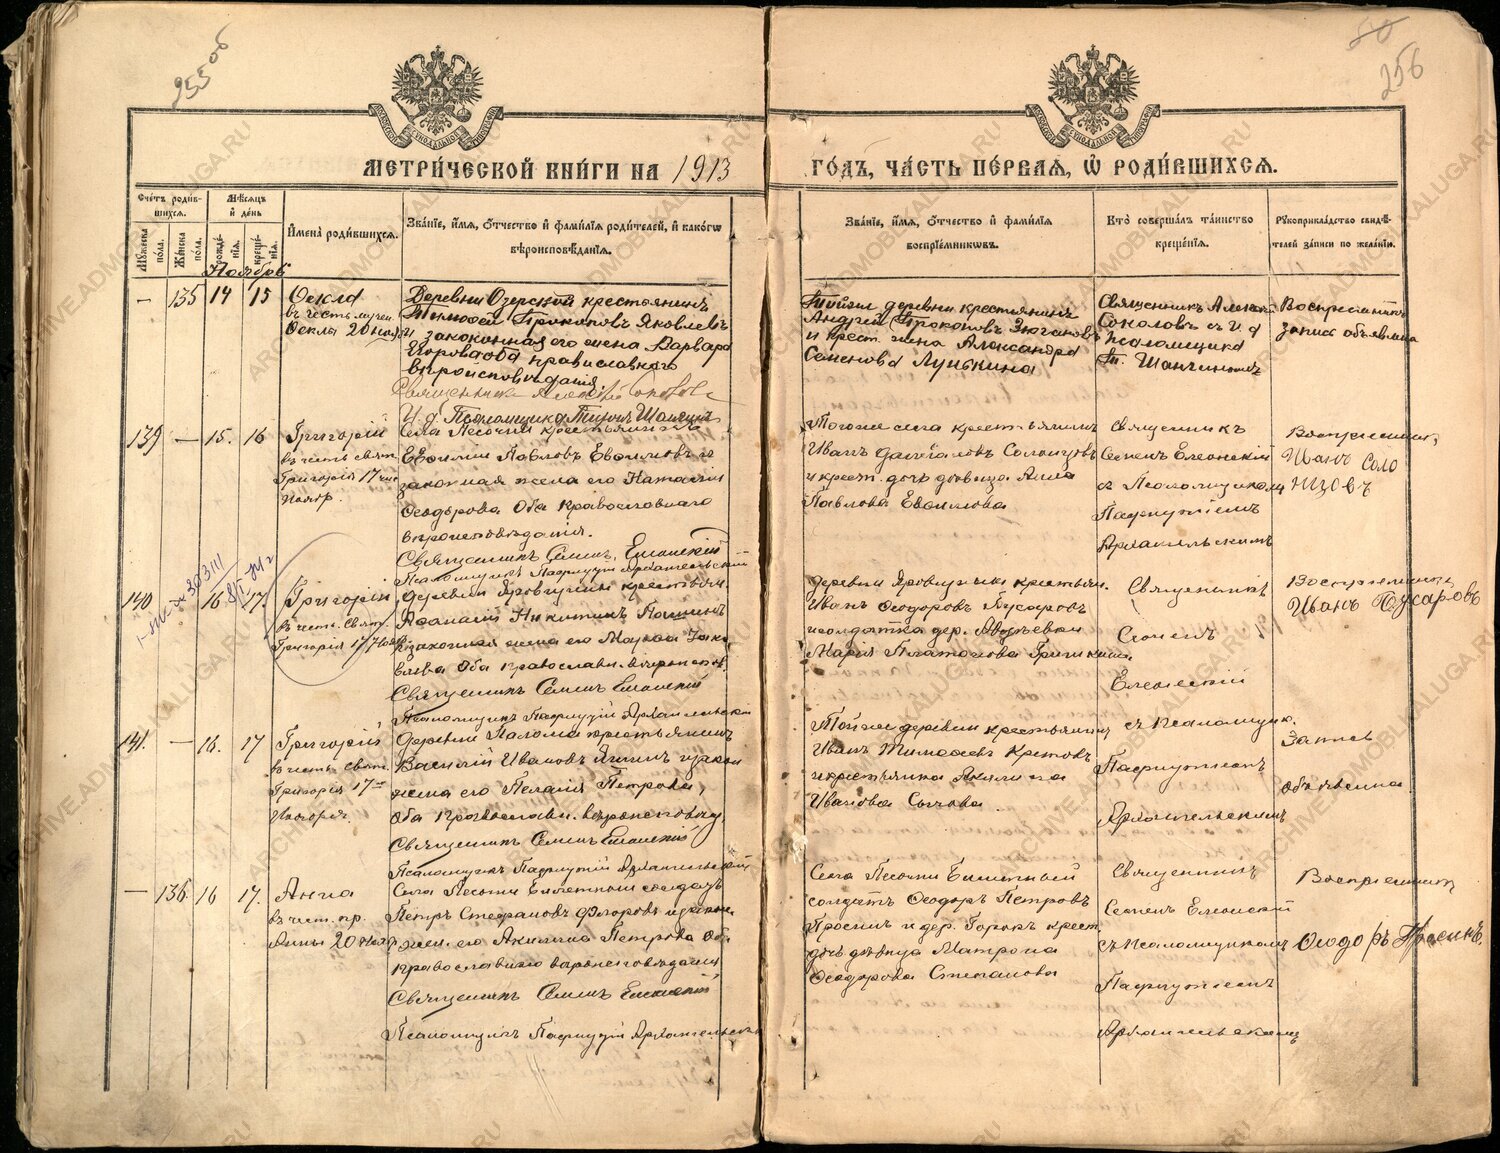 255 об
50
256
МЕТРИ́ЧЕСКОЙ КНИ́ГИ НА 1913
ГО́ДЪ, ЧА́СТЬ ПЕ́РВАЯ, Ѡ҆ РОДИ́ВШИХСЯ.
Сче́тъ роди́вшихся.
Му́жеска по́ла.
Же́нска по́ла.
Мѣ́сяцъ и҆ де́нь
рожде́нія.
креще́нія.
И҆мена̀ роди́вшихся.
Зва́ніе, и҆́мя, ѻ҆́тчество и҆ фами́лія роди́телей, и҆ како́гѡ
вѣроисповѣ́данія.
Зва́ніе, и҆́мя, ѻ҆́тчество и҆ фами́лія
воспрїе́мникѡвъ.
Кто̀ соверша́лъ та́инство
креще́нія.
Рꙋкоприкла́дство свидѣ́
телей за́писи по жела́нію.
Ноябрь
— 135 14 15
Ѳекла
въ честь мучен.
Ѳеклы 20 нояб.
Деревни Озерской крестьянинъ
Тимоѳей Прокоповъ Яковлевъ
и законная его жена Варвара
Егорова оба православнаго
вѣроисповѣданія.
Священникъ Алексѣй Соколовъ
И. д. Псаломщика Тихонъ Шанчинъ
Тойже деревни крестьянинъ
Андрей Прокоповъ Зюгановъ
и крест. жена Александра
Семенова Лунькина
Священникъ Алексѣй
Соколовъ съ и. д.
псаломщика
Т. Шанчинымъ
запись объявлена
139 — 15. 16
Григорій
въ честь свят.
Григорія 17 чис.
Ноябр.
Села Песочни крестьянинъ
Евѳимій Павловъ Евѳимовъ и
законная жена его Наталія
Ѳеодорова Оба Православнаго
вѣроисповѣданія.
Священникъ Семенъ Елеонскій
Псаломщикъ Пафнутій Архангельскій
Тогоже села крестьянинъ
Иванъ Солонцовъ
и крест. дочь дѣвица Анна
Павлова Евѳимова
Священникъ
Семенъ Елеонскій
съ Псаломщикомъ
Пафнутіемъ
Архангельскимъ
Воспріемникъ
Иванъ Соло
нцовъ
140 16 17.
Григорій
въ честь Свят.
Григорія 17 Нояб.
деревни Яровщины крестьян.
Аѳанасій Никитинъ Пошинъ
и законная жена его Марѳа Яко
влева Оба православн. вѣроиспов.
Священникъ Семенъ Елеонскій
Псаломщикъ Пафнутій Архангельскій
деревни Яровщины крестьян.
Иванъ Ѳеодоровъ Гусаровъ
и солдатка дер. Авдѣевки
Марія Платонова Гришкина
Священникъ
Семенъ
Елеонскій
съ Псаломщик.
Пафнутіемъ
Архангельскимъ
Воспріемникъ
Иванъ Гусаровъ
141. — 16. 17
Григорій
въ честь Свят.
Григорія 17го
Ноября.
Деревни Палома крестьянинъ
Василій Ивановъ Яшинъ и закон
жена его Пелагія Петрова,
оба православн. вѣроисповѣд.
Священникъ Семенъ Елеонскій
Псаломщикъ Пафнутій Архангельскій
Тойже деревни крестьянинъ
Иванъ Тимоѳеевъ Кретовъ
и крестьянка Акилина
Иванова Сычова
Запись
объявлена
— 136. 16 17.
Анна
въ чест. пр.
Анны 20 Нояб.
Села Песочни Билетный солдатъ
Петръ Стефановъ Флоровъ и закон.
жен. его Акилина Петрова Оба
православнаго вѣроисповѣданія
Священникъ Семенъ Елеонскій
Псаломщикъ Пафнутій Архангельскій
Села Песочни Билетный
солдатъ Ѳеодоръ Петровъ
Просинъ и дер. Горокъ крест.
дочь дѣвица Матрона
Ѳеодорова Степанова
Священникъ
Семенъ Елеонскій
съ Псаломщикомъ
Пафнутіемъ
Архангельскимъ
Воспріемникъ
Ѳеодоръ Просинъ.
ARCHIVE.ADMOBLKALUGA.RU